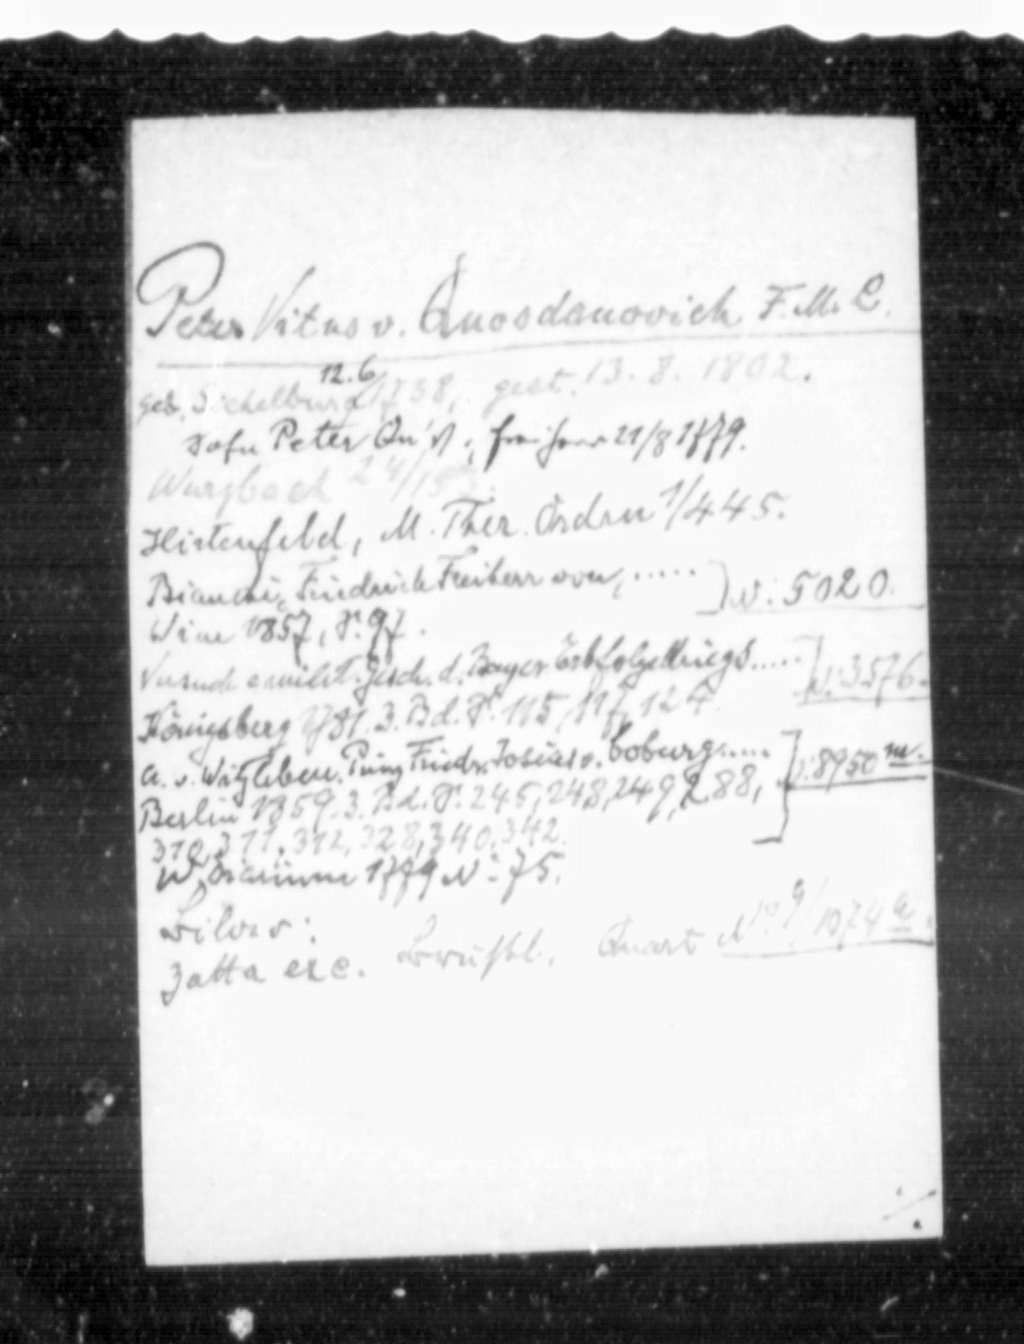 Peter Vitus v. Quosdanovich F.M.L.
12.6
geb. Sichelburg 1738, gest. 13. 8. 1802.
Sohn Peter Qu's; Freiherr 21/8 1779.
Wurzbach 24/15
Hirtenfeld, M. Ther. Orden 1/445.
Bianchi, Friedrich Freiherr von, ..... ) v: 5020.
Wien 1857, S. 97.
Versuch e. milit. Gesch. d. Bayer Erbfolgekriegs..... ] v: 3576.
Königsberg 1781. 3. Bd. S. 115, 117, 124.
A. v. Witzleben. Prinz Friedr. Josias v. Coburg..... ] v: 8950 m.
Berlin 1859. 3. Bd. S. 245, 248, 249, 288,
310, 311, 312, 328, 340, 342.
W. Diarium 1779 N: 75.
Bilder:
Zatta exc. Brustbl. Quart No 9/1074 a.